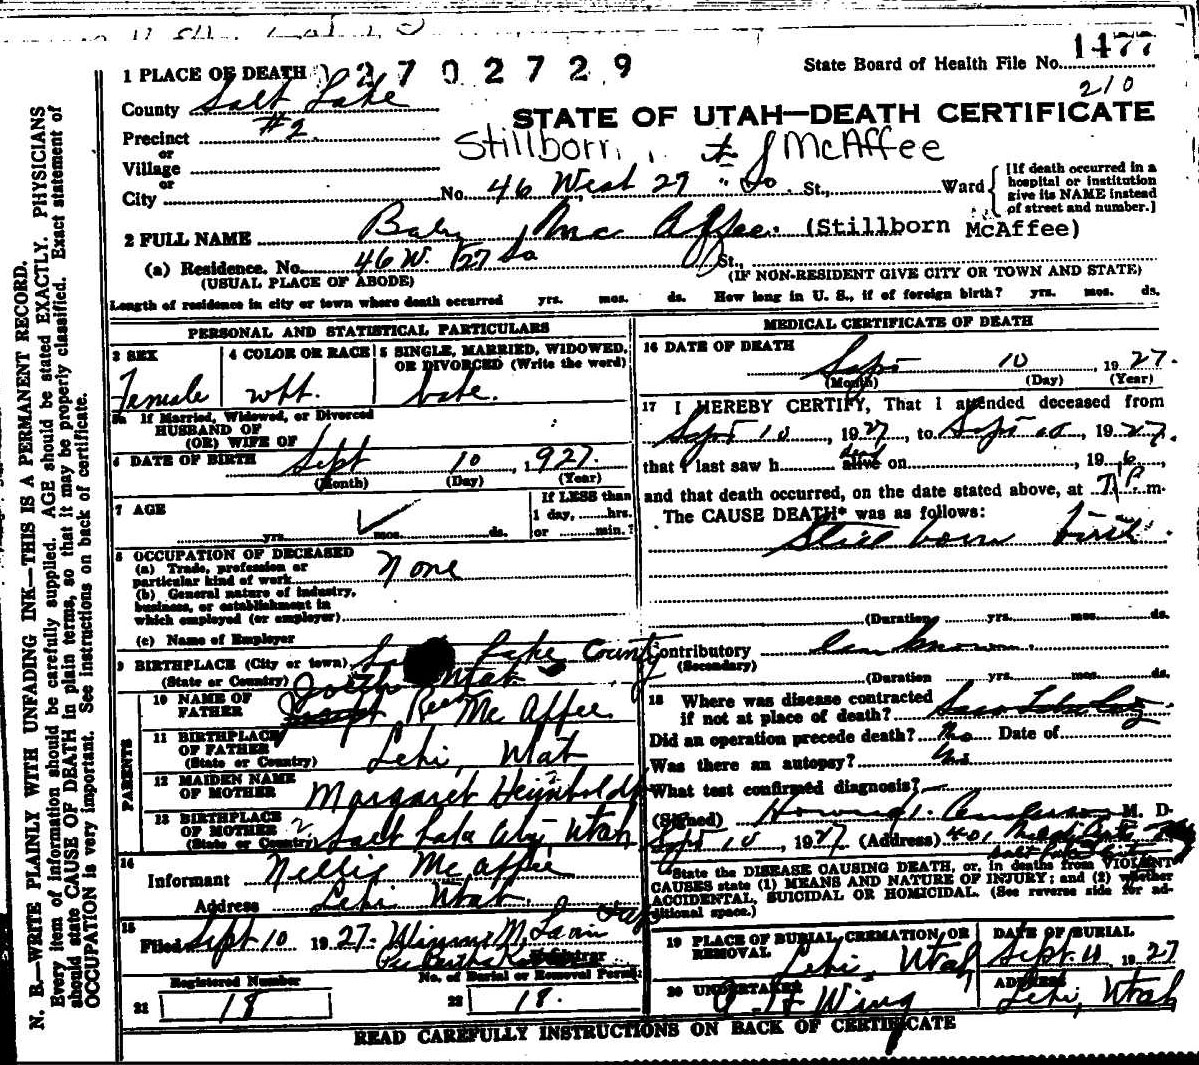 1477
State Board of Health File No.
2702729
210
1 PLACE OF DEATH
County Salt Lake
STATE OF UTAH—DEATH CERTIFICATE
Precinct #2.
or
Village
Stillborn McAffee
or
City
No. 46 West 27 " So. St., Ward
[If death occurred in a hospital or institution give its NAME instead of street and number.]
2 FULL NAME Baby Mc Affee. (Stillborn McAffee)
(a) Residence. No. 46 W. 27 So St.,
(USUAL PLACE OF ABODE)
(IF NON-RESIDENT GIVE CITY OR TOWN AND STATE)
Length of residence in city or town where death occurred yrs. mos. ds. How long in U. S., if of foreign birth? yrs. mos. ds.
PERSONAL AND STATISTICAL PARTICULARS
3 SEX
Female
4 COLOR OR RACE
wht.
5 SINGLE, MARRIED, WIDOWED, OR DIVORCED (Write the word)
babe.
5a If Married, Widowed, or Divorced
HUSBAND OF
(OR) WIFE OF
6 DATE OF BIRTH Sept 10, 1927.
(Month) (Day) (Year)
7 AGE
yrs. mos. ds.
If LESS than
1 day, hrs.
or min.?
8 OCCUPATION OF DECEASED
(a) Trade, profession or particular kind of work None
(b) General nature of industry, business, or establishment in which employed (or employer)
(c) Name of Employer
9 BIRTHPLACE (City or town) Lake County
(State or Country) Utah
PARENTS
10 NAME OF FATHER Mc Affee
11 BIRTHPLACE OF FATHER
(State or Country) Lehi, Utah
12 MAIDEN NAME OF MOTHER Margaret
13 BIRTHPLACE OF MOTHER
(State or Country) Salt Lake City, Utah
14
Informant Nellie McAffee
Address Lehi Utah.
15
Filed Sept 10 1927.
Registrar
Registered Number
21 18
No. of Burial or Removal Permit
22 18.
MEDICAL CERTIFICATE OF DEATH
16 DATE OF DEATH
Sept 10, 1927.
(Month) (Day) (Year)
17 I HEREBY CERTIFY, That I attended deceased from
Sept 10, 1927, to Sept 10, 1927.
that I last saw h alive on , 19
dead
and that death occurred, on the date stated above, at m.
The CAUSE DEATH* was as follows:
Still born birth.
(Duration) yrs. mos. ds.
Contributory Unknown.
(Secondary)
(Duration yrs. mos. ds.
18 Where was disease contracted
if not at place of death?
Did an operation precede death? No Date of
Was there an autopsy? No
What test confirmed diagnosis?
(Signed) Howard Anderson M. D.
Sept 10, 1927 (Address) 401
*State the DISEASE CAUSING DEATH, or, in deaths from VIOLENT
CAUSES state (1) MEANS AND NATURE OF INJURY; and (2) whether
ACCIDENTAL, SUICIDAL OR HOMICIDAL. (See reverse side for additional space.)
19 PLACE OF BURIAL, CREMATION, OR REMOVAL
Lehi, Utah
DATE OF BURIAL
Sept. 11 1927
20 UNDERTAKER
Wing
ADDRESS
Lehi, Utah
READ CAREFULLY INSTRUCTIONS ON BACK OF CERTIFICATE
N. B.—WRITE PLAINLY WITH UNFADING INK—THIS IS A PERMANENT RECORD.
Every item of information should be carefully supplied. AGE should be stated EXACTLY. PHYSICIANS
should state CAUSE OF DEATH in plain terms, so that it may be properly classified. Exact statement of
OCCUPATION is very important. See instructions on back of certificate.